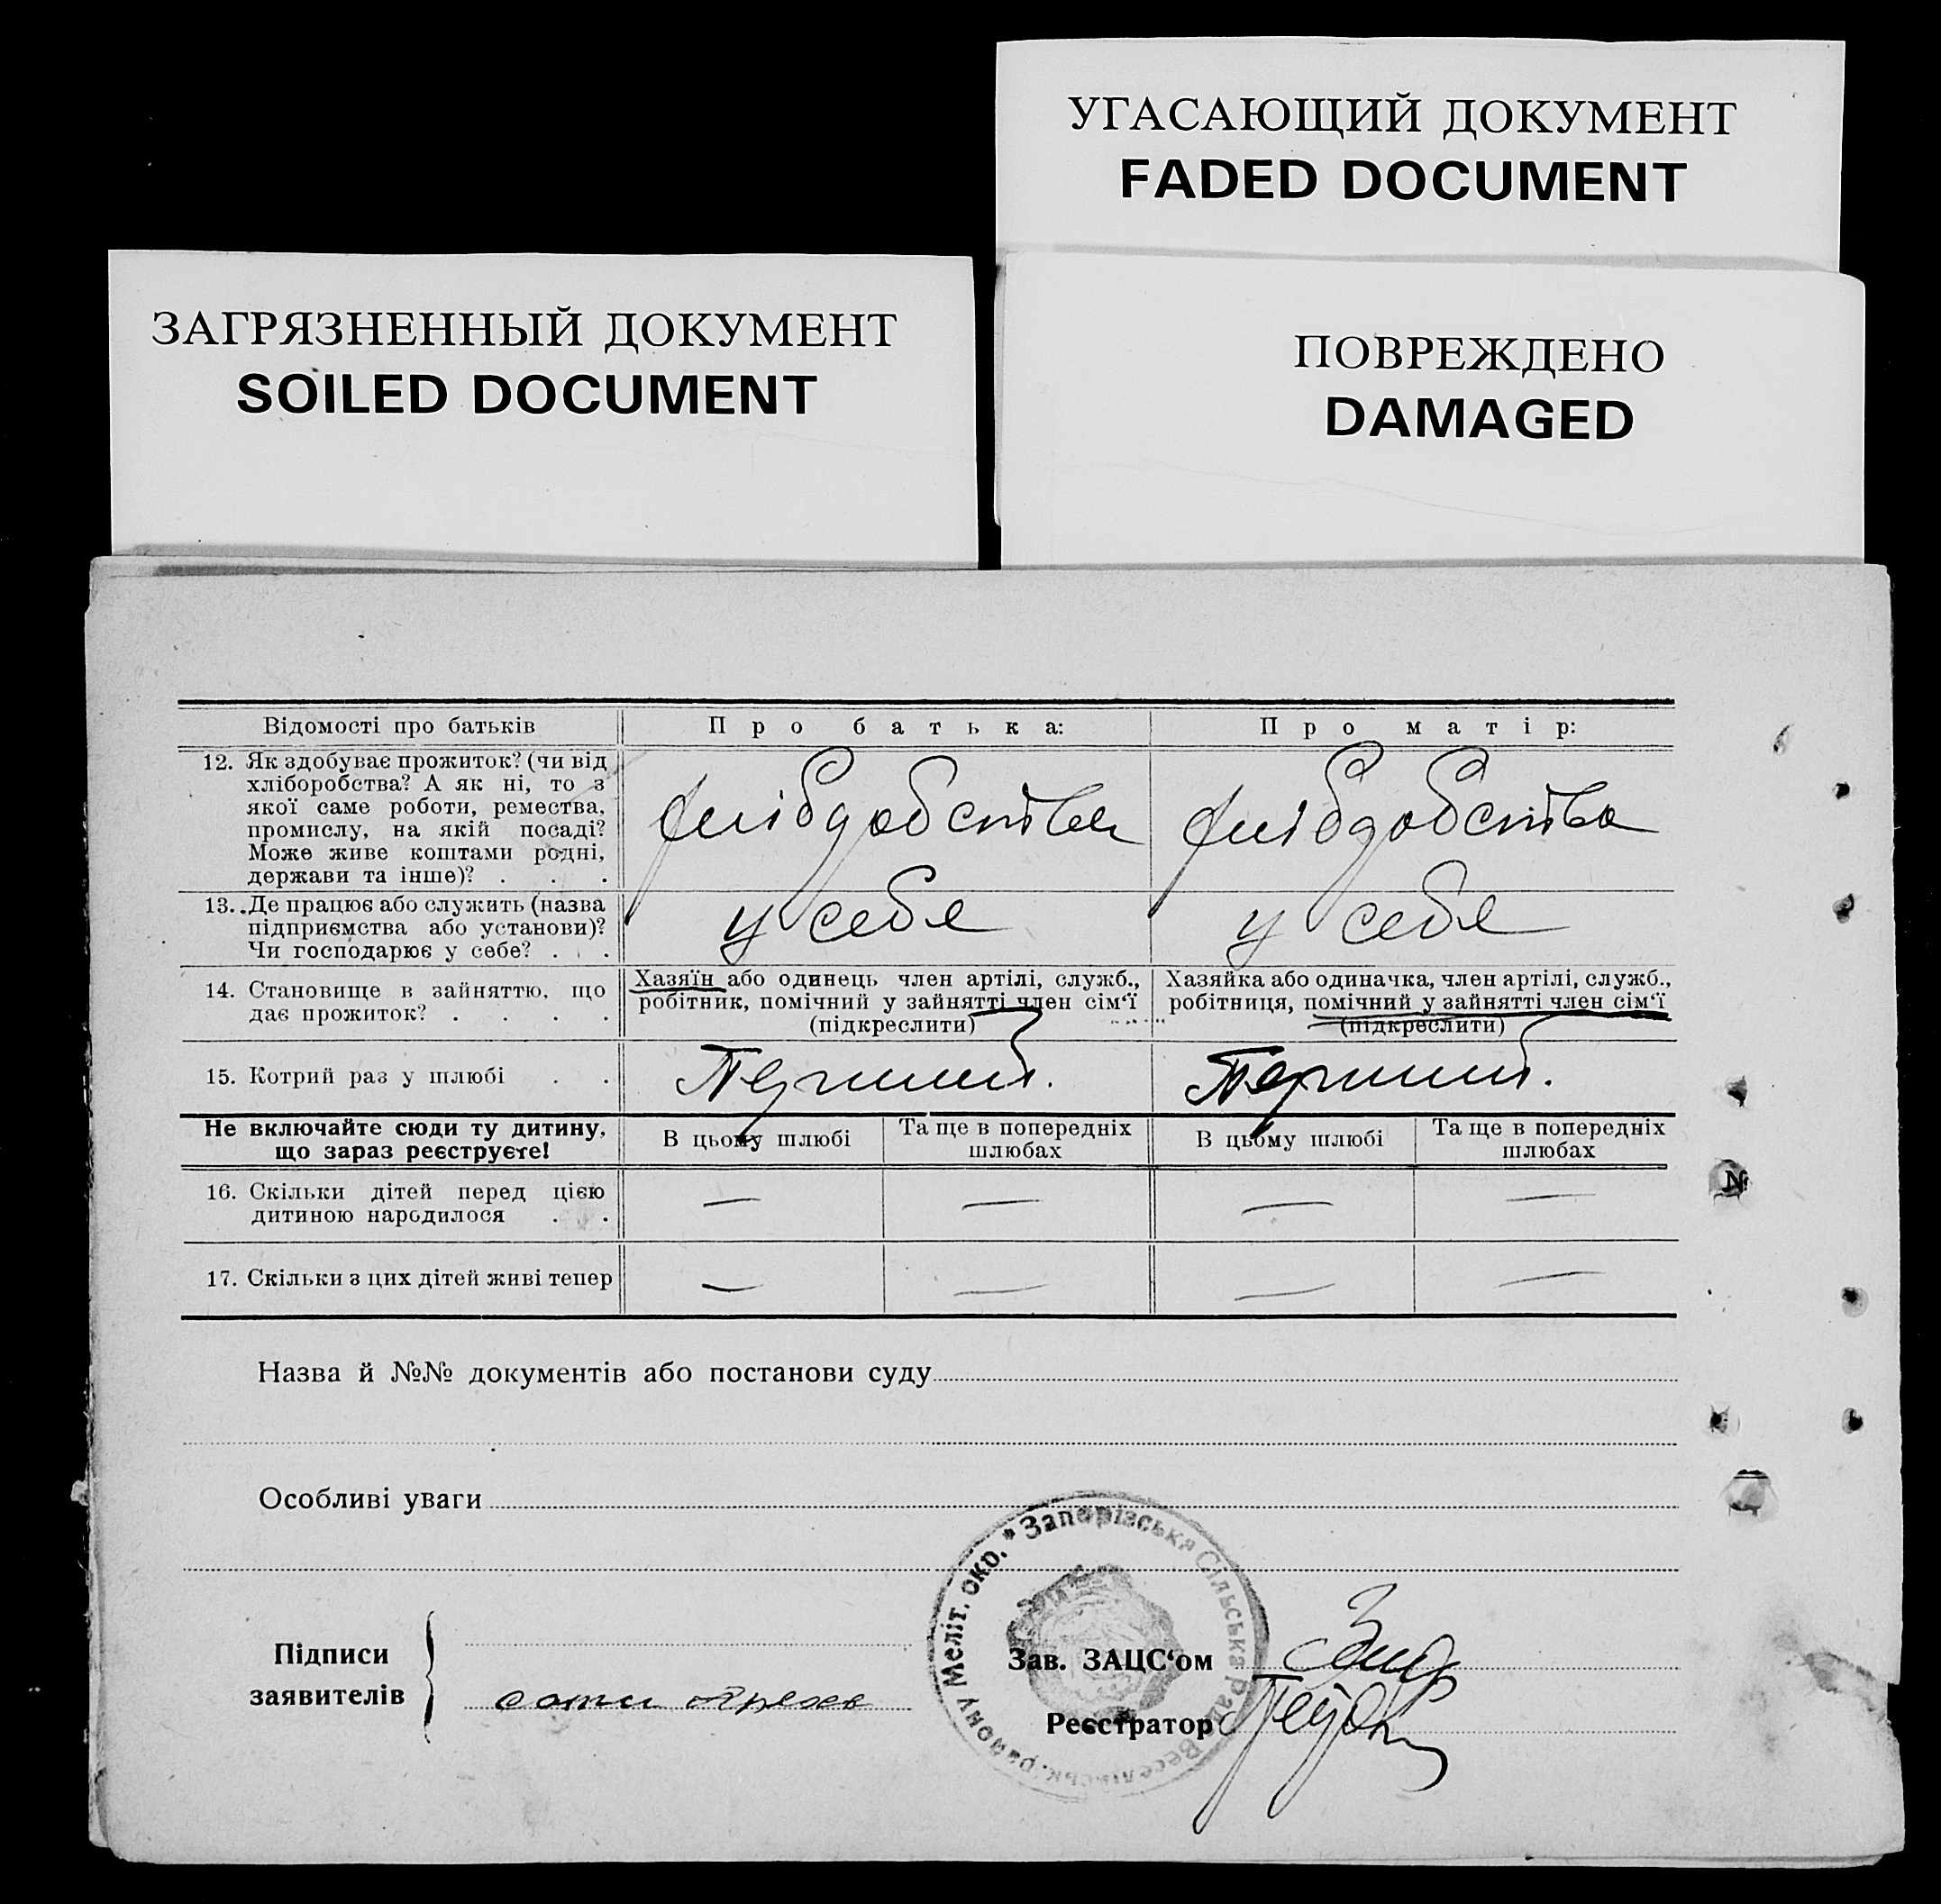 УГАСАЮЩИЙ ДОКУМЕНТ
FADED DOCUMENT
ЗАГРЯЗНЕННЫЙ ДОКУМЕНТ
SOILED DOCUMENT
ПОВРЕЖДЕНО
DAMAGED
Відомості про батьків
Про батька:
Про матір:
12. Як здобуває прожиток? (чи від
хліборобства? А як ні, то з
якої саме роботи, ремества,
промислу, на якій посаді?
Може живе коштами родні,
держави та інше)? . . .
13. Де працює або служить (назва
підприємства або установи)?
Чи господарює у себе? . . .
у себе
у себе
14. Становище в зайняттю, що
дає прожиток? . . . .
Хазяїн або одинець член артілі, служб.,
робітник, помічний у зайнятті член сім‘ї
(підкреслити)
Хазяйка або одиначка, член артілі, служб.,
робітниця, помічний у зайнятті член сім‘ї
(підкреслити)
15. Котрий раз у шлюбі . .
Перший.
Перший.
Не включайте сюди ту дитину,
що зараз реєструєте!
В цьому шлюбі
Та ще в попередніх
шлюбах
В цьому шлюбі
Та ще в попередніх
шлюбах
16. Скільки дітей перед цією
дитиною народилося . .
—
—
—
—
17. Скільки з цих дітей живі тепер
—
—
—
—
Назва й №№ документів або постанови суду
Особливі уваги
Меліт. окр. * Запорізська Сільська Рада Весельськ. району
Підписи
заявителів
Зав. ЗАЦС‘ом
Реєстратор